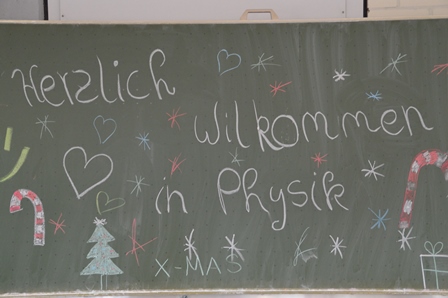 Herzlich
Wilkommen
in Physik
X-MAS